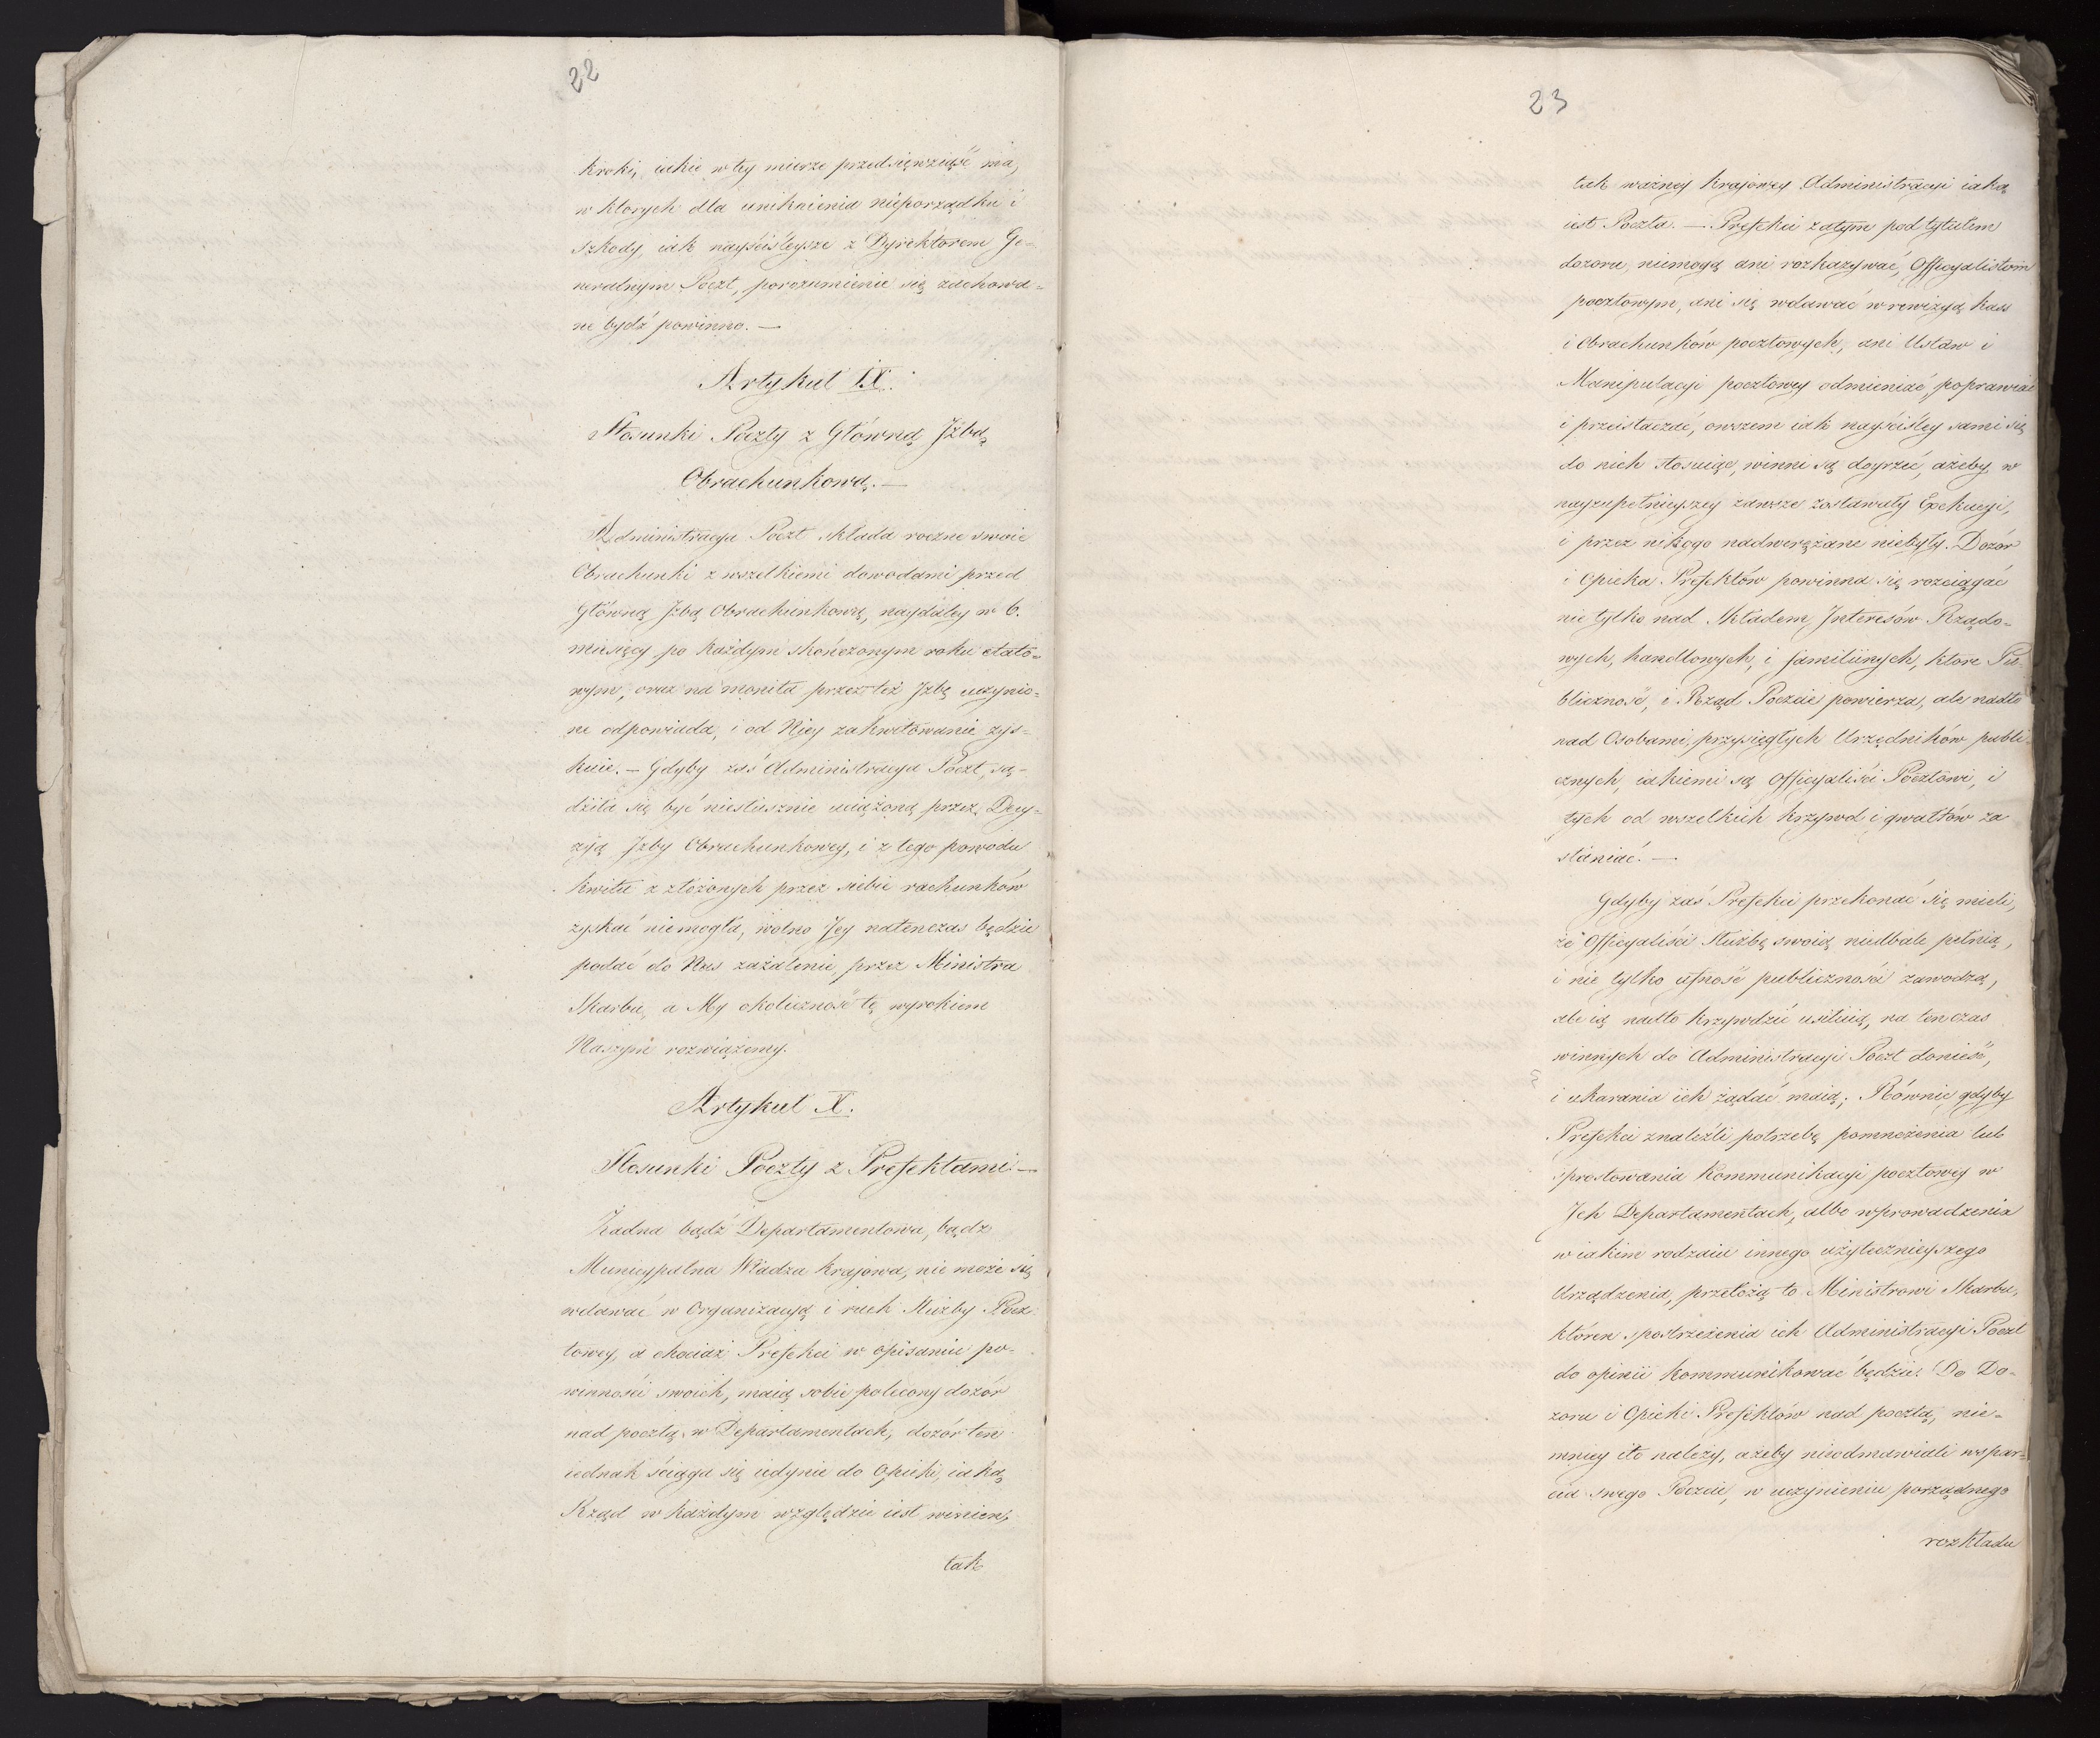 22
kroki, iakie w tey mierze przedsięwziąść ma,
w ktorych dla uniknienia nieporządku i
szkody, iak nayściśleysze z Dyrektorem Ge-
neralnym Poczt, porozumienie się zachowa-
ne bydź powinno. —
Artykuł IX.
Stosunki Poczty z Główną Jzbą
Obrachunkową. —
Administracya Poczt składa roczne swoie
Obrachunki z wszelkiemi dowodami przed
Główną Jzbą Obrachunkową, naydaley w 6.
miesięcy po każdym skończonym roku etato-
wym, oraz na monita przez też Jzbę uczynio-
ne odpowiada, i od Niey zakwitowanie zys-
kuie. — Gdyby zaś Administracya Poczt, są-
dziła się być niesłusznie uciążoną przez Decy-
zyą Jzby Obrachunkowey, i z tego powodu
kwitu z złożonych przez siebie rachunków
zyskać niemogła, wolno Jey natenczas będzie
podać do Nas zażalenie przez Ministra
Skarbu, a My okoliczność tę wyrokiem
Naszym rozwiążemy.
Artykuł X.
Stosunki Poczty z Prefektami. —
Żadna bądź Departamentowa, bądz
Municypalna Władza krajowa, nie może się
wdawać w Organizacyą i ruch Służby Pocz-
towey, a chociaż Prefekci w opisaniu po-
winności swoich, maią sobie polecony dozór
nad pocztą w Departamentach, dozór ten
iednak ściąga się iedynie do Opieki, iaką
Rząd w każdym względzie iest winien,
tak
23
tak ważney krajowey Administracyi iaką
iest Poczta. — Prefekci zatym pod tytułem
dozoru, niemogą ani rozkazywać, Officyalistom
pocztowym, ani się wdawać w rewizyą kass
i Obrachunków pocztowych, ani Ustaw i
Manipulacyi pocztowey odmieniać, poprawiać
i przeistaczać, owszem iak nayściśley sami się
do nich stosuiąc, winni są doyrzeć, ażeby w
nayzupełnieyszey zawsze zostawały Exekucyi,
i przez nikogo nadwerężane niebyły. Dozór
i Opieka Prefektów powinna się rozciągać
nie tylko nad składem Jnteresów Rządo-
wych, handlowych, i familiinych, ktore Pu-
bliczność, i Rząd Poczcie powierza, ale nadto
nad Osobami, przysięgłych Urzędników publi-
cznych, iakiemi są Officyaliści Pocztowi, i
tych od wszelkich krzywd i gwałtów za
słaniać. —
Gdyby zaś Prefekci przekonać się mieli,
że Officyaliści Służbę swoią niedbale pełnią,
i nie tylko ufność publiczności zawodzą,
ale ią nadto krzywdzić usiłuią, na ten czas
winnych do Administracyi Poczt donieść,
i ukarania ich żądać maią; Równie gdyby
Prefekci znaleźli potrzebę pomnożenia lub
sprostowania Kommunikacyi pocztowey w
Jch Departamentach, albo wprowadzenia
w iakim rodzaiu innego użytecznieyszego
Urządzenia, przełożą to Ministrowi Skarbu,
któren spostrzeżenia ich Administracyi Poczt
do opinii kommunikować będzie. Do Do-
zoru i Opieki Prefektów nad pocztą, nie-
mniey ito należy, ażeby nieodmawiali wspar-
cia swego Poczcie, w uczynieniu porządnego
rozkładu